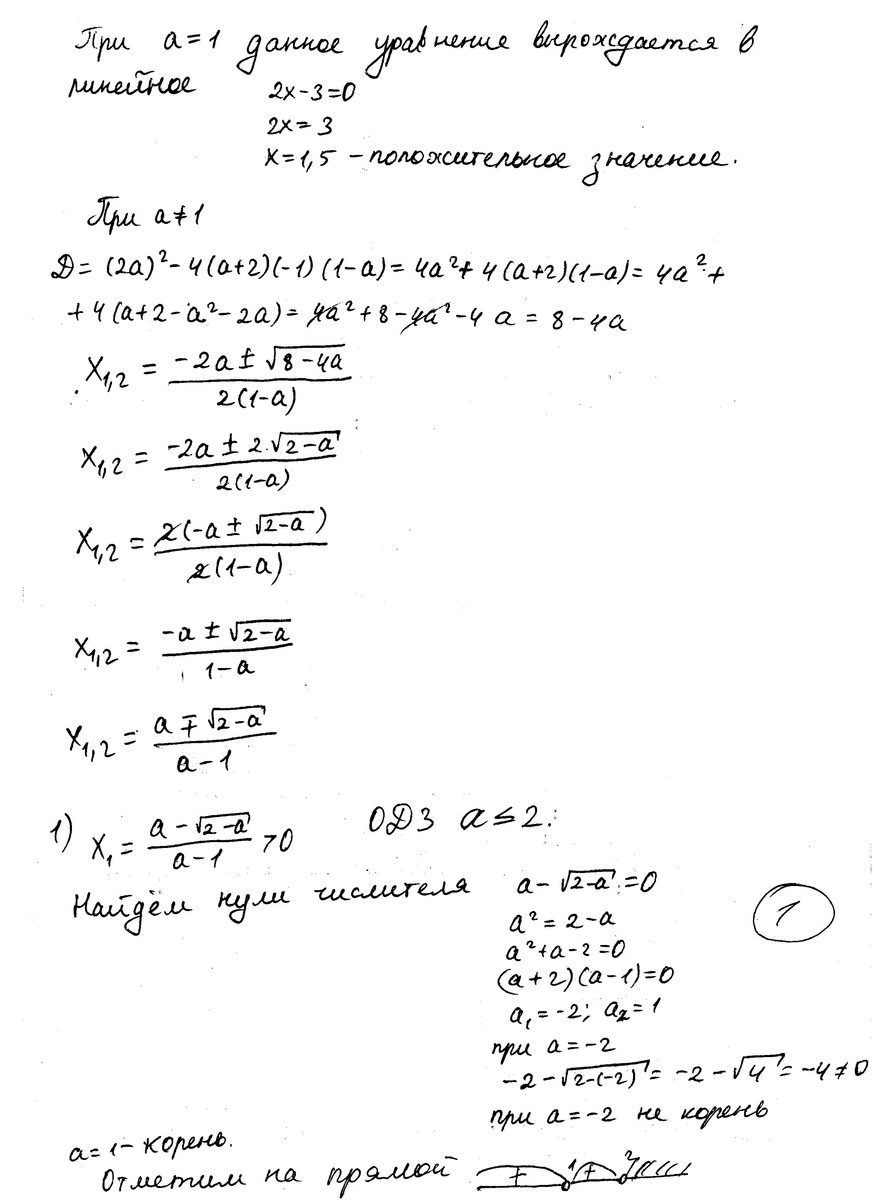 При a=1 данное уравнение вырождается в
линейное
2x-3=0
2x=3
x=1,5 - положительное значение.
При a≠1
D=(2a)²-4(a+2)(-1)(1-a)=4a²+4(a+2)(1-a)=4a²+
+4(a+2-a²-2a)=4a²+8-4a²-4a=8-4a
X₁,₂ = (-2a±√(8-4a))/(2(1-a))
X₁,₂ = (-2a±2·√(2-a))/(2(1-a))
X₁,₂ = (2(-a±√(2-a)))/(2(1-a))
X₁,₂ = (-a±√(2-a))/(1-a)
X₁,₂ = (a∓√(2-a))/(a-1)
1) X₁ = (a-√(2-a))/(a-1) >0 ОДЗ a≤2.
Найдём нули числителя a-√(2-a)=0
a²=2-a
1
a²+a-2=0
(a+2)(a-1)=0
a₁=-2; a₂=1
при a=-2
-2-√(2-(-2))=-2-√4=-4≠0
при a=-2 не корень
a=1- корень.
Отметим на прямой + 1 + 2